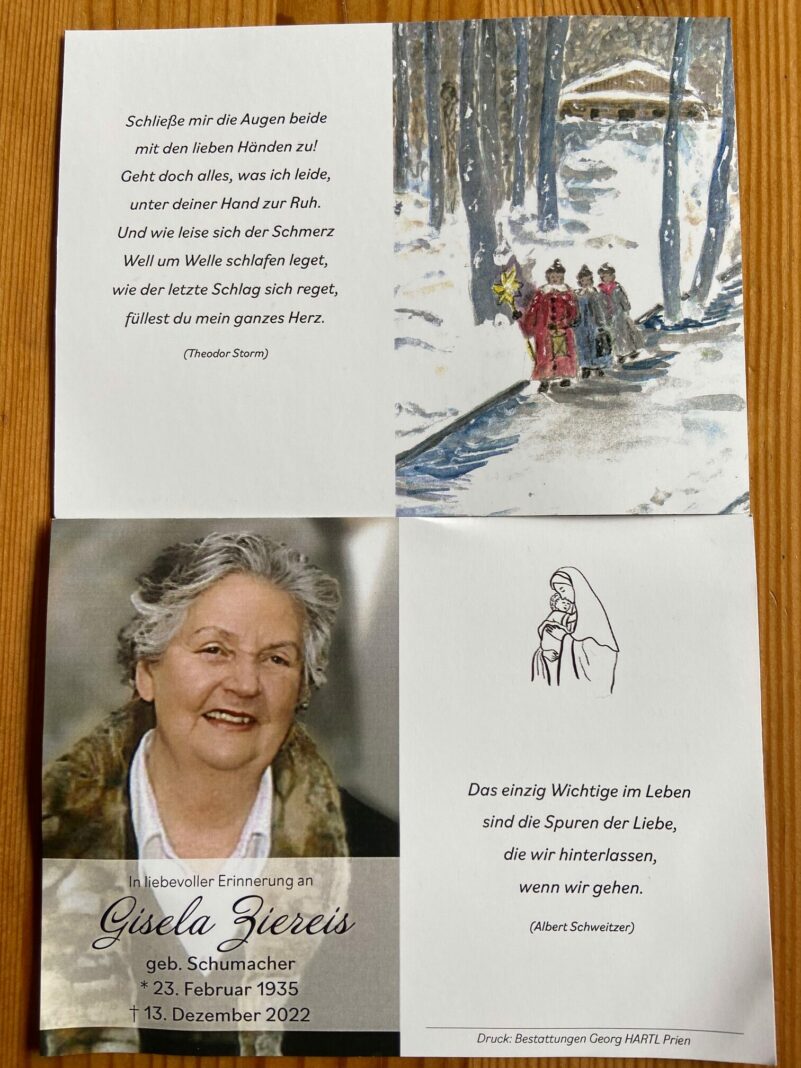 Schließe mir die Augen beide
mit den lieben Händen zu!
Geht doch alles, was ich leide,
unter deiner Hand zur Ruh.
Und wie leise sich der Schmerz
Well um Welle schlafen leget,
wie der letzte Schlag sich reget,
füllest du mein ganzes Herz.
(Theodor Storm)
In liebevoller Erinnerung an
Gisela Ziereis
geb. Schumacher
* 23. Februar 1935
† 13. Dezember 2022
Das einzig Wichtige im Leben
sind die Spuren der Liebe,
die wir hinterlassen,
wenn wir gehen.
(Albert Schweitzer)
Druck: Bestattungen Georg HARTL Prien